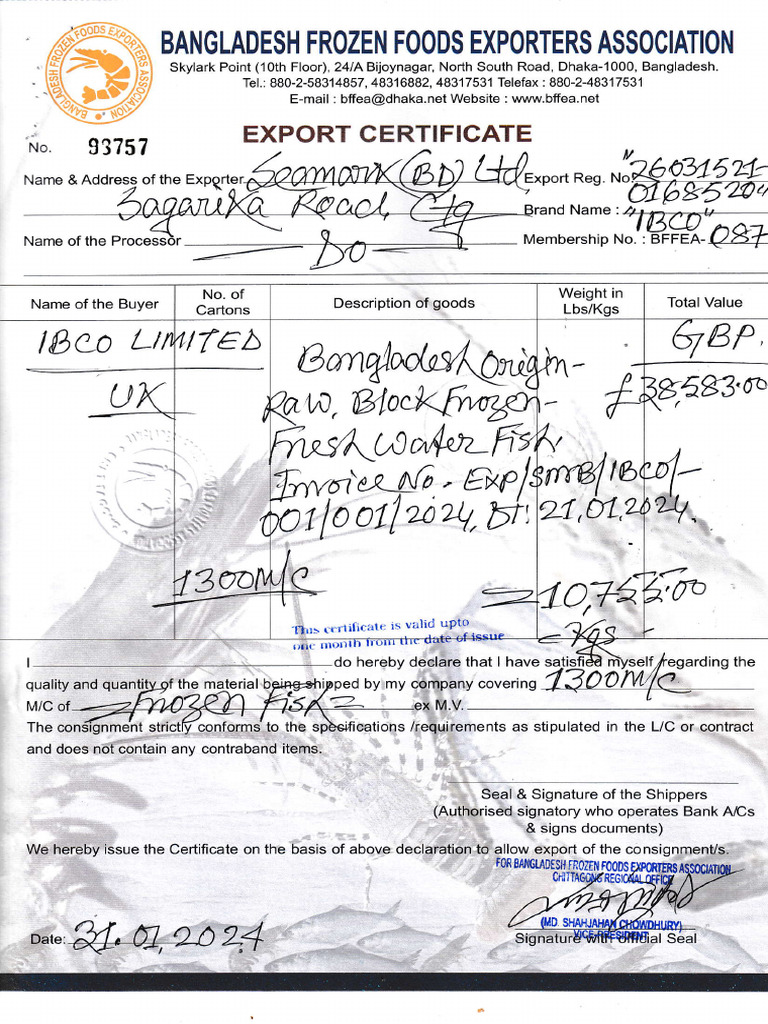 BANGLADESH FROZEN FOODS EXPORTERS ASSOCIATION
BANGLADESH FROZEN FOODS EXPORTERS ASSOCIATION
Skylark Point (10th Floor), 24/A Bijoynagar, North South Road, Dhaka-1000, Bangladesh.
Tel.: 880-2-58314857, 48316882, 48317531 Telefax : 880-2-48317531
E-mail : bffea@dhaka.net Website : www.bffea.net
EXPORT CERTIFICATE
No. 93757
Name & Address of the Exporter Seamark (BD) Ltd, Export Reg. No "26031521-
Sagarika Road, Ctg 01685204"
Brand Name : "IBCO"
Name of the Processor — Do — Membership No. : BFFEA- 087
Name of the Buyer No. of Cartons Description of goods Weight in Lbs/Kgs Total Value
IBCO LIMITED GBP.
UK £38,583.00
Bangladesh Origin-
Raw, Block Frozen-
Fresh Water Fish,
Invoice No. Exp/SMB/IBCO/-
001/001/2024, Dt: 21,01,2024.
1300M/C = 10,755.00
= Kgs -
This certificate is valid upto
one month from the date of issue
I do hereby declare that I have satisfied myself regarding the
quality and quantity of the material being shipped by my company covering 1300M/C
M/C of = Frozen Fish = ex M.V.
The consignment strictly conforms to the specifications /requirements as stipulated in the L/C or contract
and does not contain any contraband items.
Seal & Signature of the Shippers
(Authorised signatory who operates Bank A/Cs
& signs documents)
We hereby issue the Certificate on the basis of above declaration to allow export of the consignment/s.
FOR BANGLADESH FROZEN FOODS EXPORTERS ASSOCIATION
CHITTAGONG REGIONAL OFFICE
(MD. SHAHJAHAN CHOWDHURY)
VICE-PRESIDENT
Date: 31.01,2024 Signature with official Seal